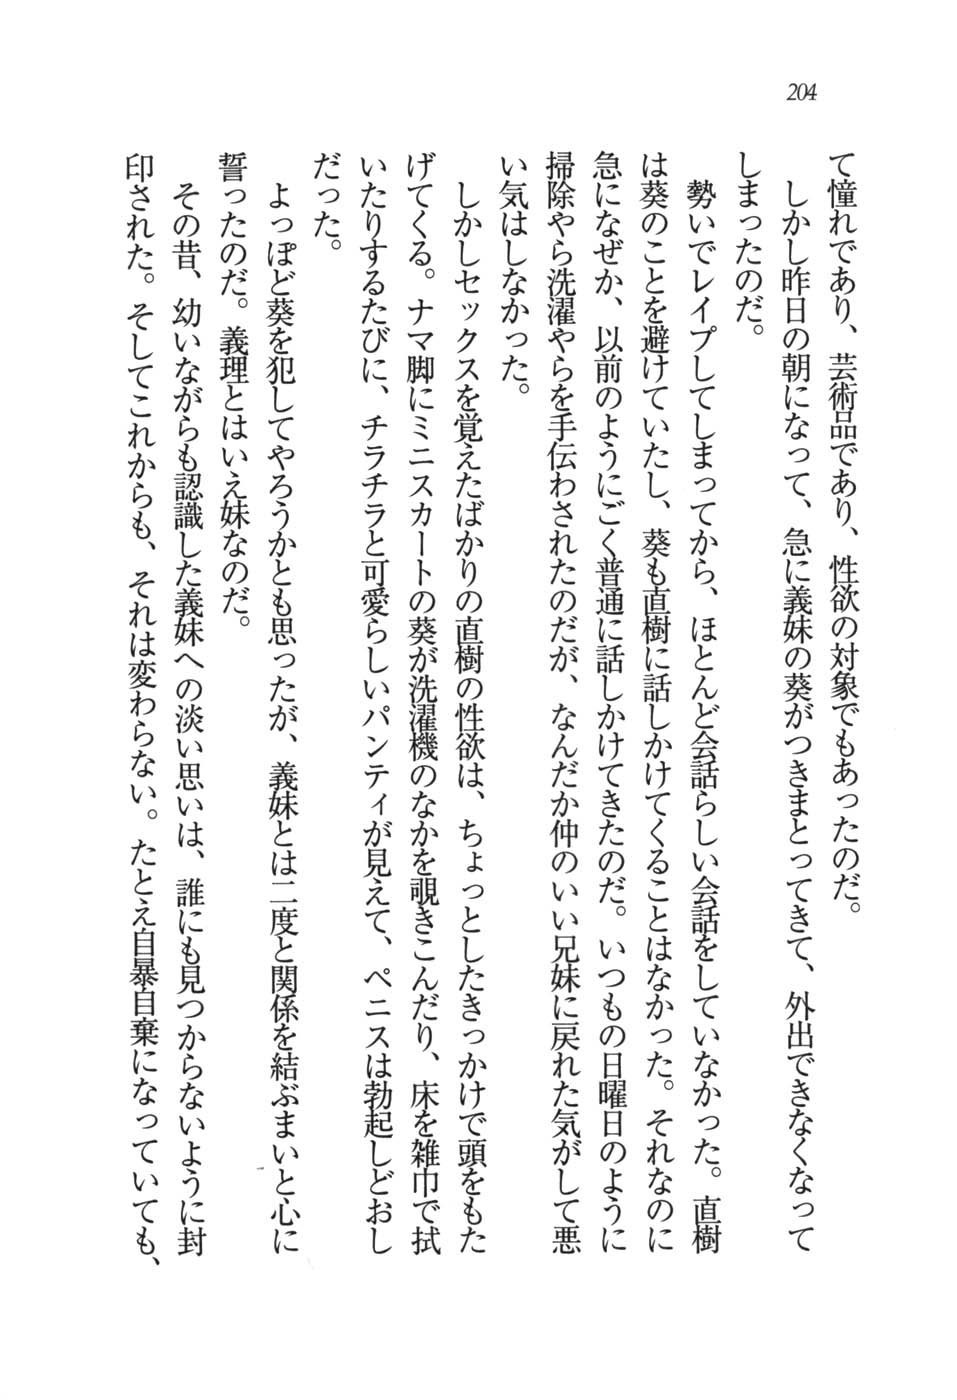 204
て憧れであり、芸術品であり、性欲の対象でもあったのだ。
しかし昨日の朝になって、急に義妹の葵がつきまとってきて、外出できなくなって
しまったのだ。
勢いでレイプしてしまってから、ほとんど会話らしい会話をしていなかった。直樹
は葵のことを避けていたし、葵も直樹に話しかけてくることはなかった。それなのに
急になぜか、以前のようにごく普通に話しかけてきたのだ。いつもの日曜日のように
掃除やら洗濯やらを手伝わされたのだが、なんだか仲のいい兄妹に戻れた気がして悪
い気はしなかった。
しかしセックスを覚えたばかりの直樹の性欲は、ちょっとしたきっかけで頭をもた
げてくる。ナマ脚にミニスカートの葵が洗濯機のなかを覗きこんだり、床を雑巾で拭
いたりするたびに、チラチラと可愛らしいパンティが見えて、ペニスは勃起しどおし
だった。
よっぽど葵を犯してやろうかとも思ったが、義妹とは二度と関係を結ぶまいと心に
誓ったのだ。義理とはいえ妹なのだ。
その昔、幼いながらも認識した義妹への淡い思いは、誰にも見つからないように封
印された。そしてこれからも、それは変わらない。たとえ自暴自棄になっていても、